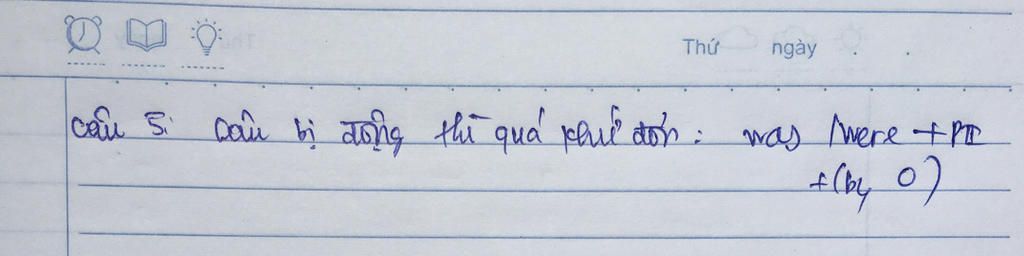 Thứ ngày
câu 5: Câu bị động thì quá khứ đơn: was /were + PII
+ (by O)